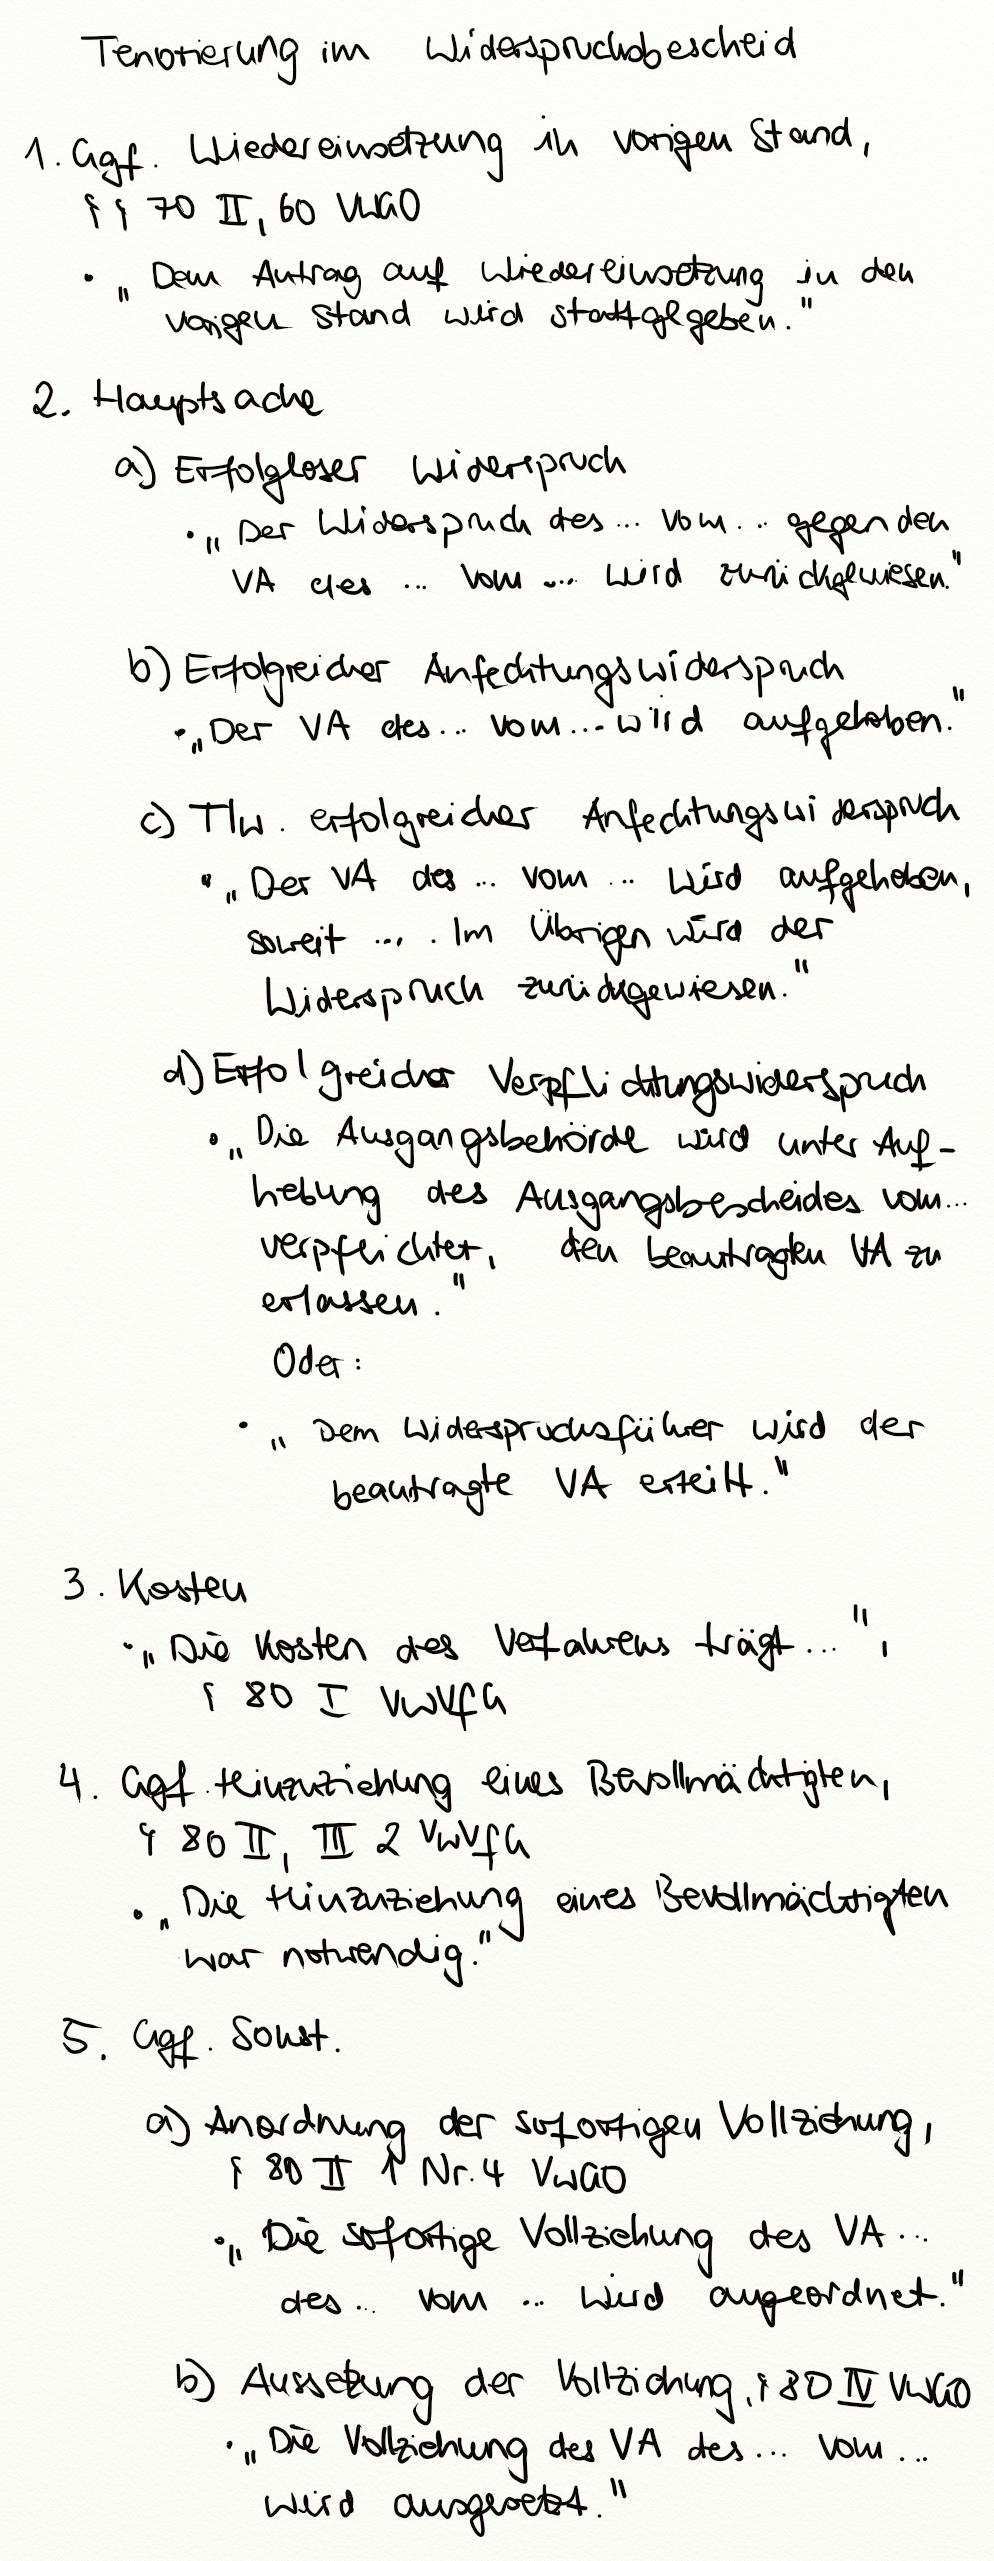 Tenorierung im Widerspruchsbescheid
1. Ggf. Wiedereinsetzung in vorigen Stand,
§§ 70 II, 60 VwGO
• „Dem Antrag auf Wiedereinsetzung in den
vorigen Stand wird stattgegeben."
2. Hauptsache
a) Erfolgloser Widerspruch
• „Der Widerspruch des ... vom ... gegen den
VA des ... vom ... wird zurückgewiesen."
b) Erfolgreicher Anfechtungswiderspruch
• „Der VA des ... vom ... wird aufgehoben."
c) Tlw. erfolgreicher Anfechtungswiderspruch
• „Der VA des ... vom ... wird aufgehoben,
soweit .... Im Übrigen wird der
Widerspruch zurückgewiesen."
d) Erfolgreicher Verpflichtungswiderspruch
• „Die Ausgangsbehörde wird unter Auf-
hebung des Ausgangsbescheides vom...
verpflichtet, den beantragten VA zu
erlassen."
Oder:
• „Dem Widerspruchsführer wird der
beantragte VA erteilt."
3. Kosten
• „Die Kosten des Verfahrens trägt ...",
§ 80 I VwVfG
4. Ggf. Hinzuziehung eines Bevollmächtigten,
§ 80 II, III 2 VwVfG
• „Die Hinzuziehung eines Bevollmächtigten
war notwendig."
5. Ggf. Sonst.
a) Anordnung der sofortigen Vollziehung,
§ 80 II 1 Nr. 4 VwGO
• „Die sofortige Vollziehung des VA ...
des ... vom ... wird angeordnet."
b) Aussetzung der Vollziehung, § 80 IV VwGO
• „Die Vollziehung des VA des ... vom ...
wird ausgesetzt."